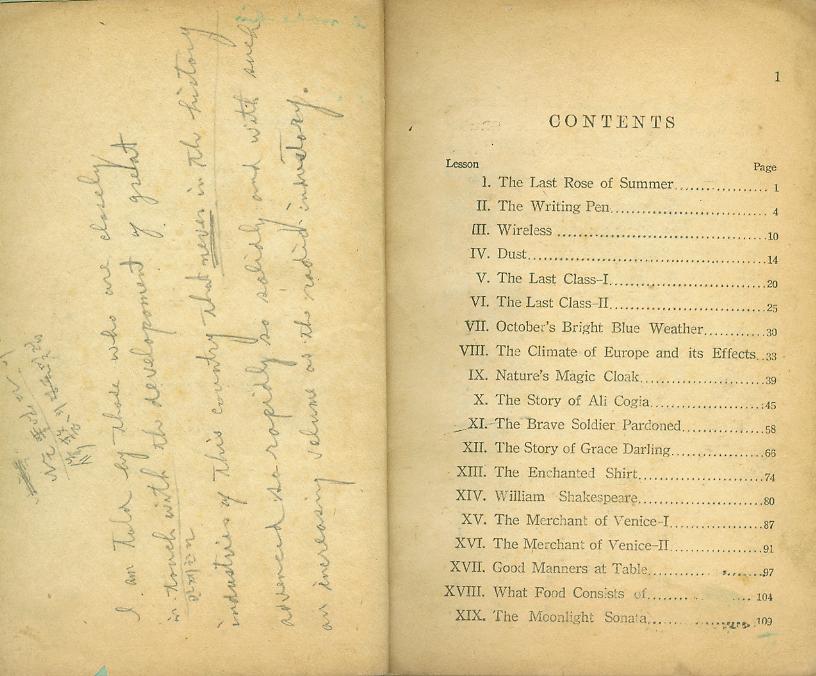 I am told by those who are closely
in touch with the development of great
industries of this country that never in the history
advanced so rapidly so solidly and with such
an increasing volume as the radio industry.
1
CONTENTS
Lesson Page
I. The Last Rose of Summer 1
II. The Writing Pen 4
III. Wireless 10
IV. Dust 14
V. The Last Class-I 20
VI. The Last Class-II 25
VII. October's Bright Blue Weather 30
VIII. The Climate of Europe and its Effects 33
IX. Nature's Magic Cloak 39
X. The Story of Ali Cogia 45
XI. The Brave Soldier Pardoned 58
XII. The Story of Grace Darling 66
XIII. The Enchanted Shirt 74
XIV. William Shakespeare 80
XV. The Merchant of Venice-I 87
XVI. The Merchant of Venice-II 91
XVII. Good Manners at Table 97
XVIII. What Food Consists of 104
XIX. The Moonlight Sonata 109